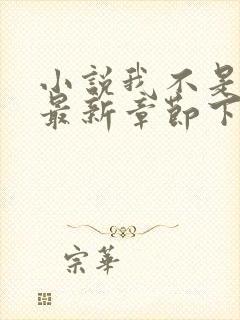 小說我不是
最新章節下
宗華